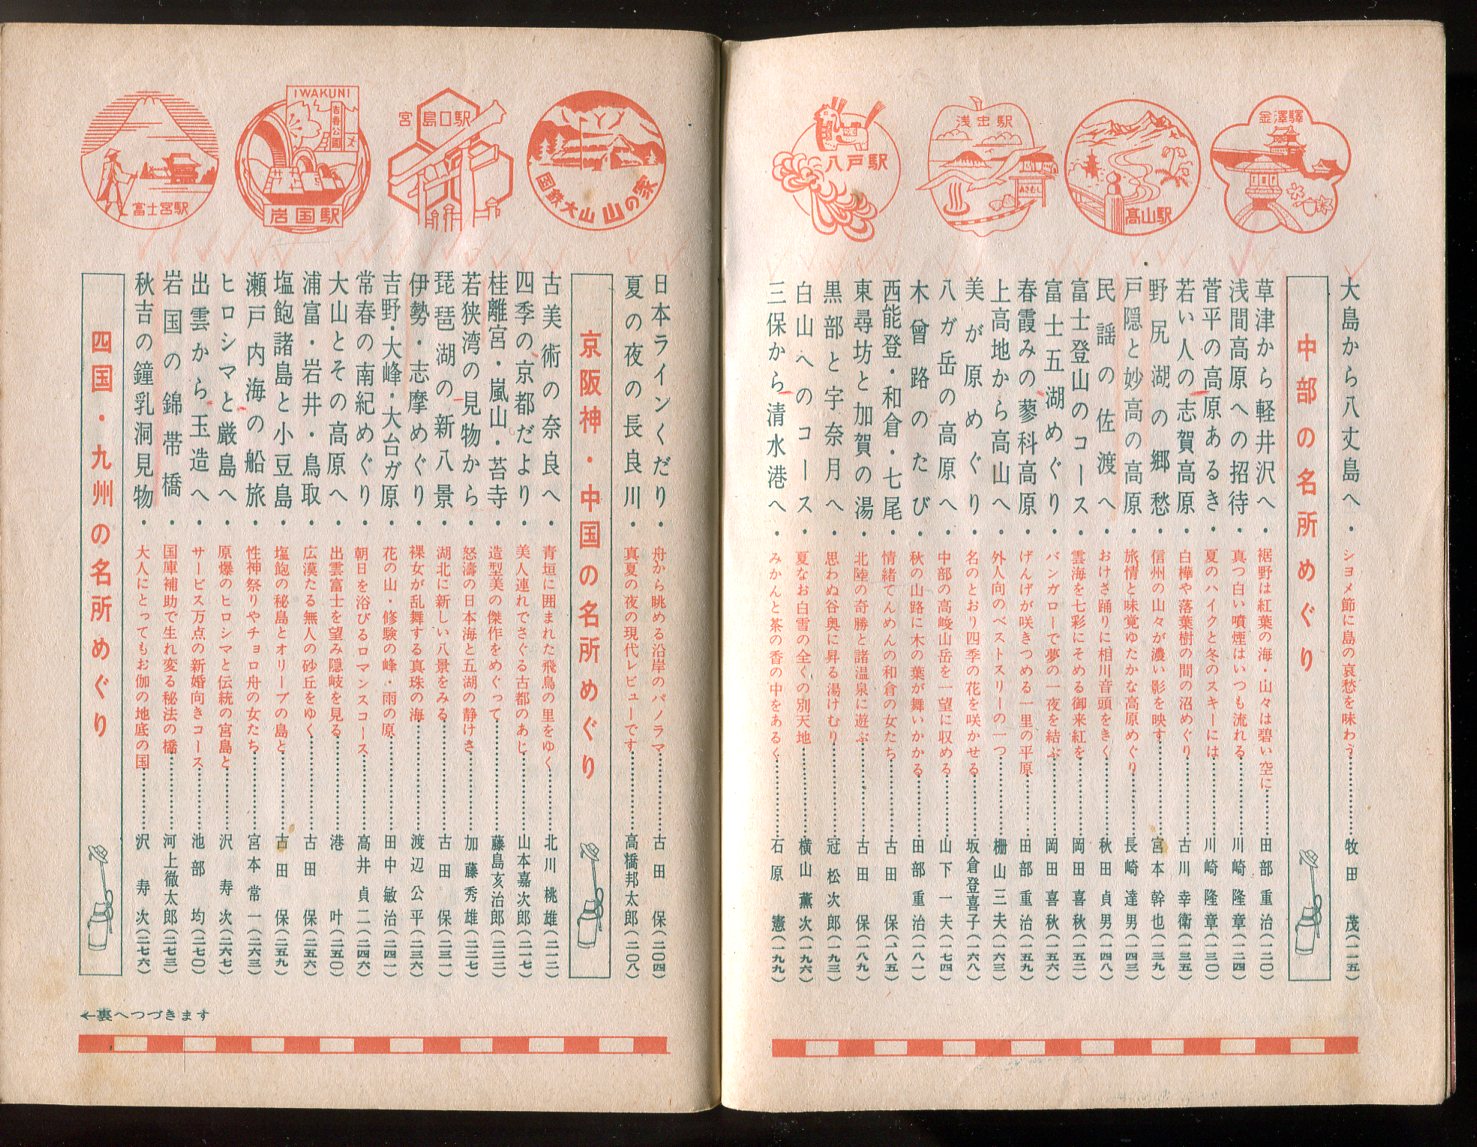 金澤驛
高山駅
浅虫駅
あさむし
八戸駅
大島から八丈島へ・ショメ節に島の哀愁を味わう…………牧田 茂(一一五)
中部の名所めぐり
草津から軽井沢へ・裾野は紅葉の海・山々は碧い空に…………田部重治(一二〇)
浅間高原への招待・真つ白い噴煙はいつも流れる…………川崎隆章(一二四)
菅平の高原あるき・夏のハイクと冬のスキーには…………川崎隆章(一三〇)
若い人の志賀高原・白樺や落葉樹の間の沼めぐり…………古川幸衛(一三五)
野尻湖の郷愁・信州の山々が濃い影を映す…………宮本幹也(一三九)
戸隠と妙高の高原・旅情と味覚ゆたかな高原めぐり…………長崎達男(一四三)
民謡の佐渡へ・おけさ踊りに相川音頭をきく…………秋田貞男(一四八)
富士登山のコース・雲海を七彩にそめる御来紅を…………岡田喜秋(一五二)
富士五湖めぐり・バンガローで夢の一夜を結ぶ…………岡田喜秋(一五六)
春霞みの蓼科高原・げんげが咲きつめる一里の平原…………田部重治(一五九)
上高地から高山へ・外人向のベストスリーの一つ…………柵山三夫(一六三)
美が原めぐり・名のとおり四季の花を咲かせる…………坂倉登喜子(一六八)
八ガ岳の高原へ・中部の高峻山岳を一望に収める…………山下一夫(一七四)
木曾路のたび・秋の山路に木の葉が舞いかかる…………田部重治(一八一)
西能登・和倉・七尾・情緒てんめんの和倉の女たち…………古田 保(一八五)
東尋坊と加賀の湯・北陸の奇勝と諸温泉に遊ぶ…………古田 保(一八九)
黒部と宇奈月へ・思わぬ谷奥に昇る湯けむり…………冠松次郎(一九三)
白山へのコース・夏なお白雪の全くの別天地…………横山薫次(一九六)
三保から清水港へ・みかんと茶の香の中をあるく…………石原 憲(一九九)
国鉄大山 山の家
宮島口駅
IWAKUNI
吉香公園
岩国駅
富士宮駅
日本ラインくだり・舟から眺める沿岸のパノラマ…………古田 保(二〇四)
夏の夜の長良川・真夏の夜の現代レビューです…………高橋邦太郎(二〇八)
京阪神・中国の名所めぐり
古美術の奈良へ・青垣に囲まれた飛鳥の里をゆく…………北川桃雄(二一二)
四季の京都だより・美人連れでさぐる古都のあじ…………山本嘉次郎(二一七)
桂離宮・嵐山・苔寺・造型美の傑作をめぐって…………藤島亥治郎(二二二)
若狭湾の見物から・怒濤の日本海と五湖の静けさ…………加藤秀雄(二二七)
琵琶湖の新八景・湖北に新しい八景をみる…………古田 保(二三一)
伊勢・志摩めぐり・裸女が乱舞する真珠の海…………渡辺公平(二三六)
吉野・大峰・大台ガ原・花の山・修験の峰・雨の原…………田中敏治(二四一)
常春の南紀めぐり・朝日を浴びるロマンスコース…………高井貞二(二四六)
大山とその高原へ・出雲富士を望み隠岐を見る…………港 叶(二五〇)
浦富・岩井・鳥取・広漠たる無人の砂丘をゆく…………古田 保(二五六)
塩飽諸島と小豆島・塩飽の秘島とオリーブの島と…………古田 保(二五九)
瀬戸内海の船旅・性神祭りやチョロ舟の女たち…………宮本常一(二六三)
ヒロシマと厳島へ・原爆のヒロシマと伝統の宮島と…………沢 寿次(二六七)
出雲から玉造へ・サービス万点の新婚向きコース…………池部 均(二七〇)
岩国の錦帯橋・国庫補助で生れ変る秘法の橋…………河上徹太郎(二七三)
秋吉の鐘乳洞見物・大人にとってもお伽の地底の国…………沢 寿次(二七六)
四国・九州の名所めぐり
←裏へつづきます